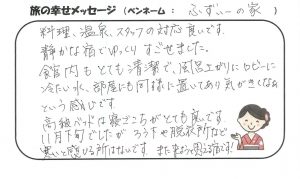 旅の幸せメッセージ（ペンネーム：ふずぃーの家）
料理、温泉、スタッフの対応良いです。
静かな宿でゆっくりすごせました。
館内もとても清潔で、風呂上がりにロビーに
冷たい水、部屋にも同様に置いてあり気がきくなぁ
という感じです。
高級ベッドは寝ごこちがとても良いです。
11月下旬でしたが ろう下や脱衣所など
寒いと感じる所はないです。また来ようと思える宿です！